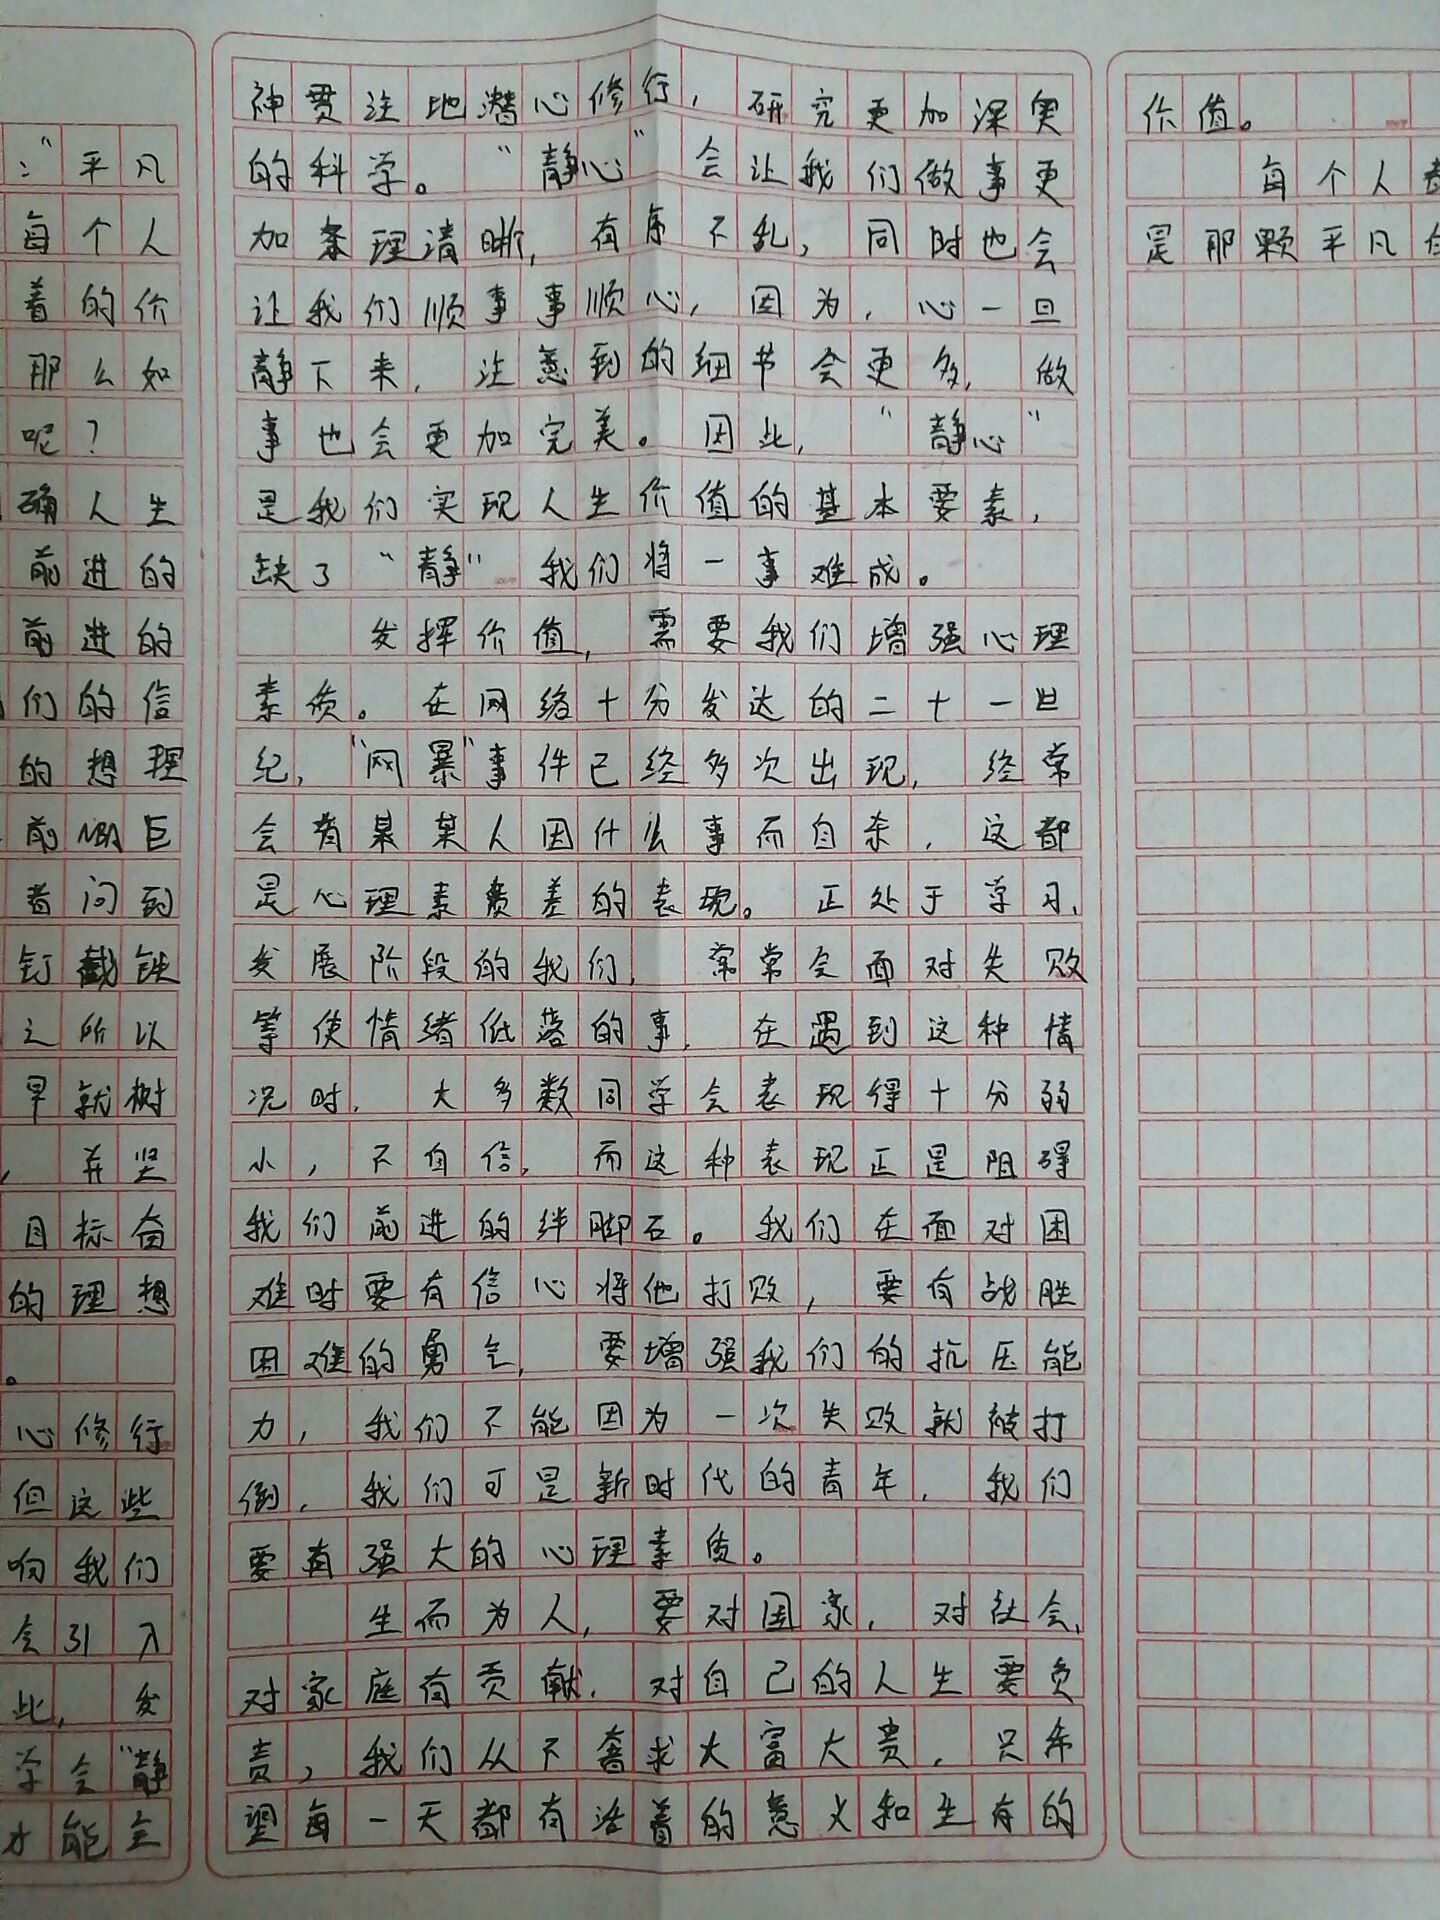 ："平凡
每个人
着的价
那么如
呢？
确人生
前进的
前进的
们的信
的想理
前NBA巨
者问到
钉截铁
之所以
早就树
，并坚
目标奋
的理想
。
心修行
但这些
响我们
会引入
此，发
学会"静
才能全
神贯注地潜心修行，研究更加深奥
的科学。"静心"会让我们做事更
加条理清晰，有序不乱，同时也会
让我们顺事事顺心，因为，心一旦
静下来，注意到的细节会更多，做
事也会更加完美。因此，"静心"
是我们实现人生价值的基本要素，
缺了"静"我们将一事难成。
发挥价值，需要我们增强心理
素质。在网络十分发达的二十一世
纪，"网暴"事件已经多次出现，经常
会有某某人因什么事而自杀，这都
是心理素质差的表现。正处于学习、
发展阶段的我们，常常会面对失败
等使情绪低落的事，在遇到这种情
况时，大多数同学会表现得十分弱
小，不自信，而这种表现正是阻碍
我们前进的绊脚石。我们在面对困
难时要有信心将他打败，要有战胜
困难的勇气，要增强我们的抗压能
力，我们不能因为一次失败就被打
倒，我们可是新时代的青年，我们
要有强大的心理素质。
生而为人，要对国家，对社会，
对家庭有贡献，对自己的人生要负
责，我们从不奢求大富大贵，只希
望每一天都有活着的意义和生存的
价值。
每个人都
是那颗平凡